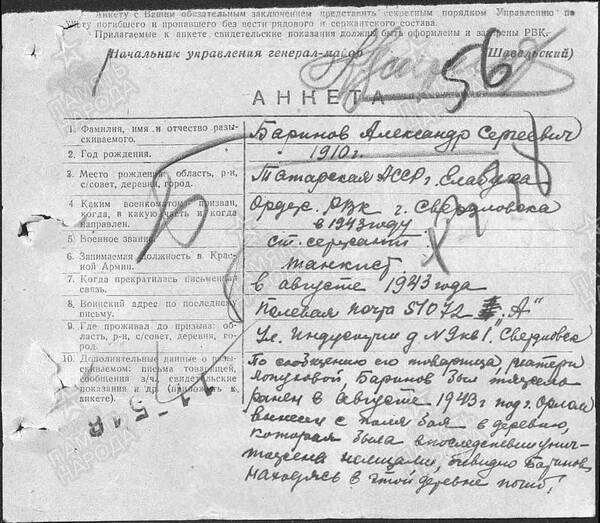 Анкету с Вашим обязательным заключением представить секретным порядком Управлению по
учету погибшего и пропавшего без вести рядового и сержантского состава.
Прилагаемые к анкете свидетельские показания должны быть оформлены и заверены РВК.
Начальник управления генерал-майор (Шавельский)
56
АНКЕТА
1. Фамилия, имя и отчество разыскиваемого. Баринов Александр Сергеевич
2. Год рождения. 1910 г.
3. Место рождения: область, р-н, с/совет, деревня, город. Татарская АССР г. Елабуга
4. Каким военкоматом призван, когда, в какую часть и когда направлен. Ордж. РВК г. Свердловска
в 1943 году
5. Военное звание. ст. сержант
6. Занимаемая должность в Красной Армии. танкист
7. Когда прекратилась письменная связь. в августе 1943 года
8. Воинский адрес по последнему письму. Полевая почта 51072 "А"
9. Где проживал до призыва: область, р-н, с/совет, деревня, город. Ул. Индустрии д №9 кв 1 Свердловск
10. Дополнительные данные о разыскиваемом: письма товарищей, сообщения в/ч, свидетельские показания и др. (приложить к анкете).
По сообщению его товарища, матери
Баринов был тяжело
ранен в августе 1943 г под г. Орлом
вынесен с поля боя в деревню,
которая была впоследствии унич-
тожена немцами, очевидно Баринов
находясь в этой деревне погиб.